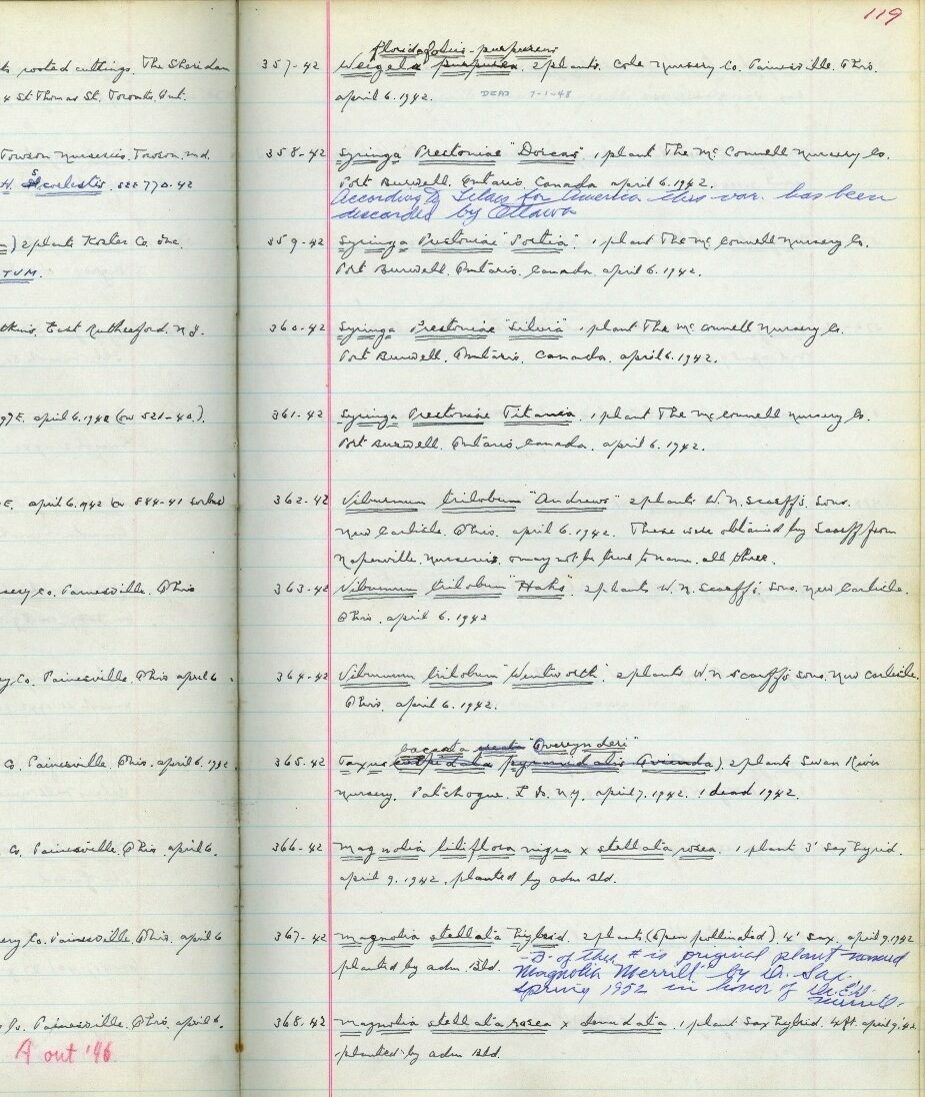 119
ts rooted cuttings. The Sheridan
4 St Thomas St, Toronto, Ont.
Towson Nurseries, Towson, Md.
SEE 770-42
) 2 plants Koster Co. Inc.
TUM.
East Rutherford, N.J.
97E. April 6, 1942 (or 521-40.).
E. April 6, 1942 or 844-41
sery Co. Painesville, Ohio
y Co. Painesville, Ohio April 6.
Co. Painesville, Ohio. April 6, 1942
Co. Painesville, Ohio. April 6.
ery Co. Painesville, Ohio. April 6
Co. Painesville, Ohio, April 6.
A out '46
floridafolius - purpureus
357-42 Weigela purpurea. 2 plants. Cole Nursery Co. Painesville, Ohio.
April 6, 1942. DEAD 7-1-48
358-42 Syringa Prestoniae "Dorcas" 1 plant The McConnell Nursery Co.
Port Burwell, Ontario, Canada April 6, 1942.
According to Lilacs for America this var. has been
discarded by Ottawa
359-42 Syringa Prestoniae "Portia". 1 plant The McConnell Nursery Co.
Port Burwell, Ontario, Canada, April 6, 1942.
360-42 Syringa Prestoniae "Silvia" 1 plant The McConnell Nursery Co.
Port Burwell, Ontario, Canada, April 6, 1942.
361-42 Syringa Prestoniae Titania. 1 plant The McConnell Nursery Co.
Port Burwell, Ontario, Canada, April 6, 1942.
362-42 Viburnum trilobum "Andrews" 2 plants W. N. Scarff's Sons.
New Carlisle, Ohio. April 6, 1942. These were obtained by Scarff from
Naperville Nurseries. & may not be true to name, all three.
363-42 Viburnum trilobum "Hahs". 2 plants W. N. Scarff's Sons, New Carlisle.
Ohio, April 6, 1942
364-42 Viburnum trilobum "Wentworth". 2 plants W. N. Scarff's Sons, New Carlisle.
Ohio, April 6, 1942.
baccata erecta "Overeynderi"
365-42 Taxus cuspidata pyramidalis). 2 plants Swan River
Nursery, Patchogue, L. Is. N.Y. April 7, 1942. 1 dead 1942.
366-42 Magnolia liliflora nigra x stellata rosea. 1 plant 3' Sax hybrid.
April 9, 1942, planted by Adm Bld.
367-42 Magnolia stellata hybrid. 2 plants (open pollinated). 4' Sax. April 9, 1942
planted by Adm Bld. -B- of this # is original plant named
Magnolia Merrill by Dr. Sax.
Spring 1952 in honor of Dr. E.D.
Merrill.
368-42 Magnolia stellata rosea x denudata. 1 plant Sax hybrid. 4 ft. April 9, '42
planted by Adm Bld.